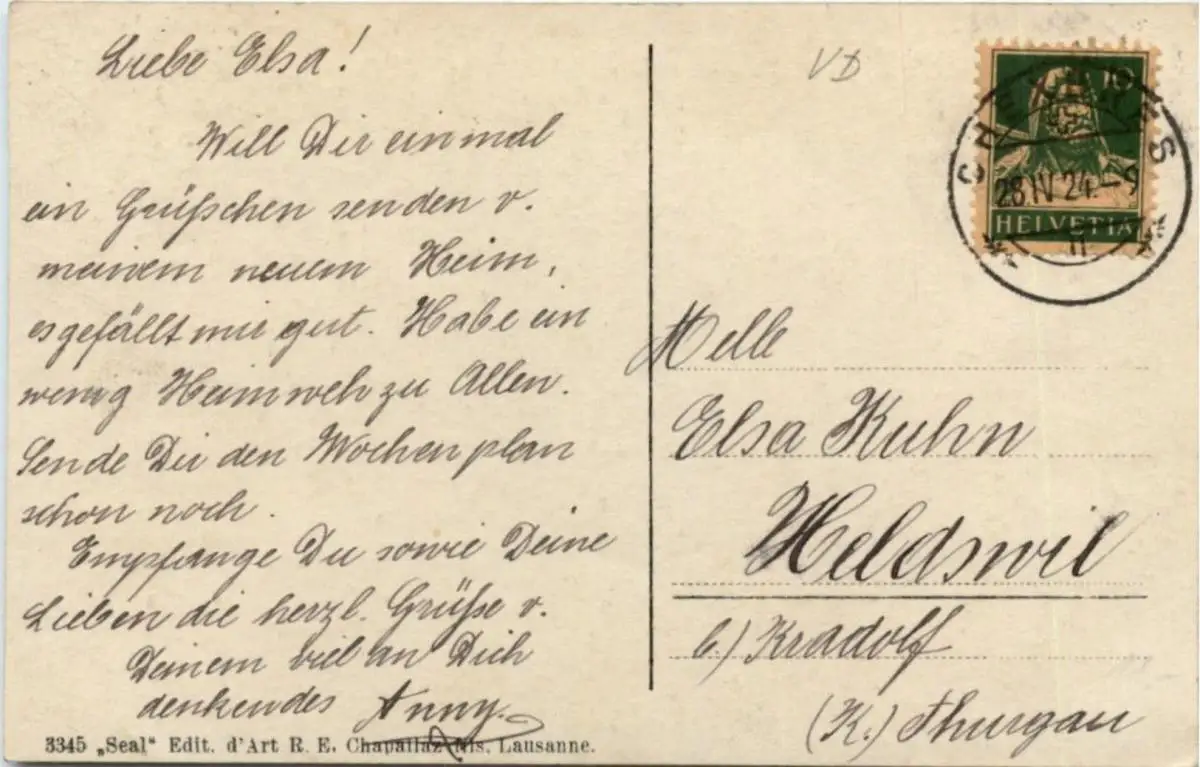 Liebe Elsa!
Will Dir einmal
ein Grüßchen senden v.
meinem neuem Heim,
es gefällt mir gut. Habe ein
wenig Heimweh zu Allen.
Sende Dir den Wochenplan
schon noch.
Empfange Du sowie Deine
Lieben die herzl. Grüße v.
Deinem viel an Dich
denkendes Anny.
3345 „Seal“ Edit. d'Art R. E. Chapallaz fils, Lausanne.
VD
10
CHEXBRES
28.IV.24.–9
HELVETIA
II
Melle
Elsa Kuhn
Heldswil
b.) Kradolf
(K.) Thurgau